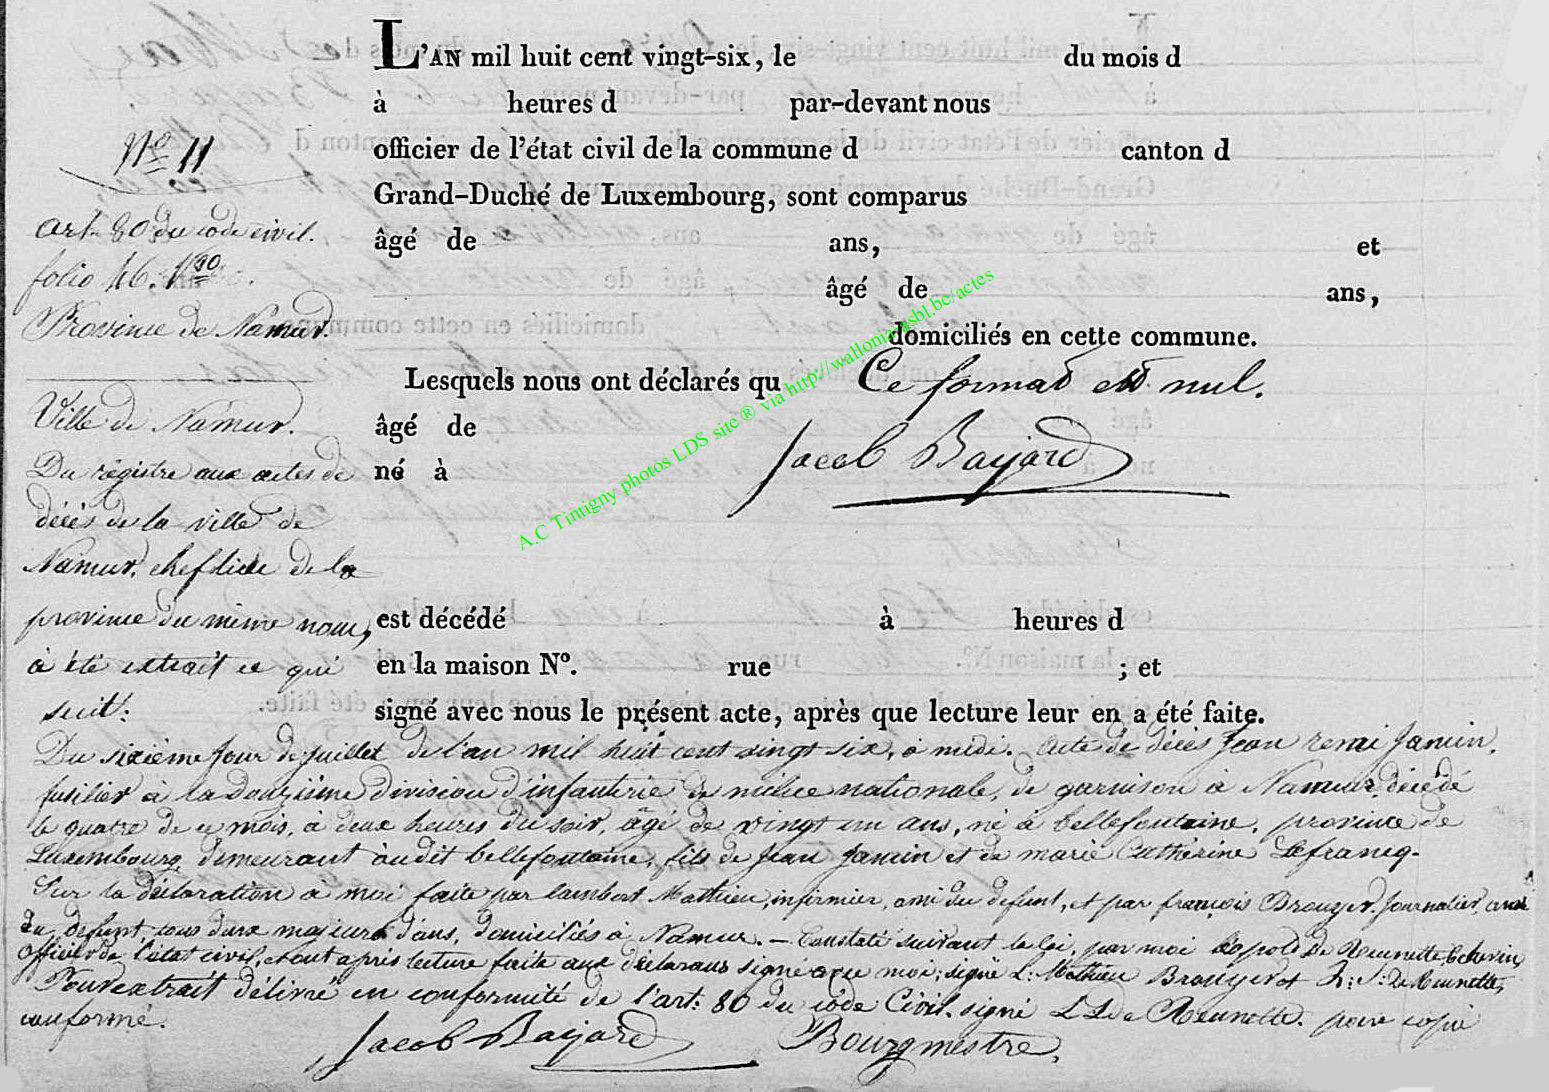 L'AN mil huit cent vingt-six, le du mois d
à heures d par-devant nous
officier de l'état civil de la commune d canton d
Grand-Duché de Luxembourg, sont comparus
âgé de ans, et
âgé de ans,
domiciliés en cette commune.
Lesquels nous ont déclarés qu Ce format est nul.
âgé de Jacob Bayard
né à
est décédé à heures d
en la maison N°. rue ; et
signé avec nous le présent acte, après que lecture leur en a été faite.
N° 11
art. 80 du code civil.
folio 16.
Province de Namur.
Ville de Namur.
Du régistre aux actes de
décès de la ville de
Namur, chef lieu de la
province du même nom,
à été extrait ce qui
suit:
Du sixième jour de juillet de l'an mil huit cent vingt six, à midi. acte de décès jean remi Jamin,
fusilier à la douzième division d'infanterie de milice nationale, de garnison à Namur, décédé
le quatre de ce mois, à deux heures du soir, âgé de vingt un ans, né à bellefontaine, province de
Luxembourg, demeurant audit bellefontaine, fils de jean jamin et de marie Catherine Lefrancq.
Sur la déclaration a moi faite par lambert Mathieu, infirmier, ami du defunt, et par françois Brouyer. journalier, ami
du defunt, tous deux majeurs d'ans, domiciliés à Namur. — Constaté suivant la loi, par moi de Reunette, Echevin,
officier de l'état civil, et ont après lecture faite aux déclarans signé avec moi; signé L: Mathieu de Reunette,
Pour extrait délivré en conformité de l'art: 80 du code Civil. signé de Reunette. pour copie
conforme.
Jacob Bayard Bourgmestre,
A.C Tintigny photos LDS site ® via http://wallonia-asbl.be/actes